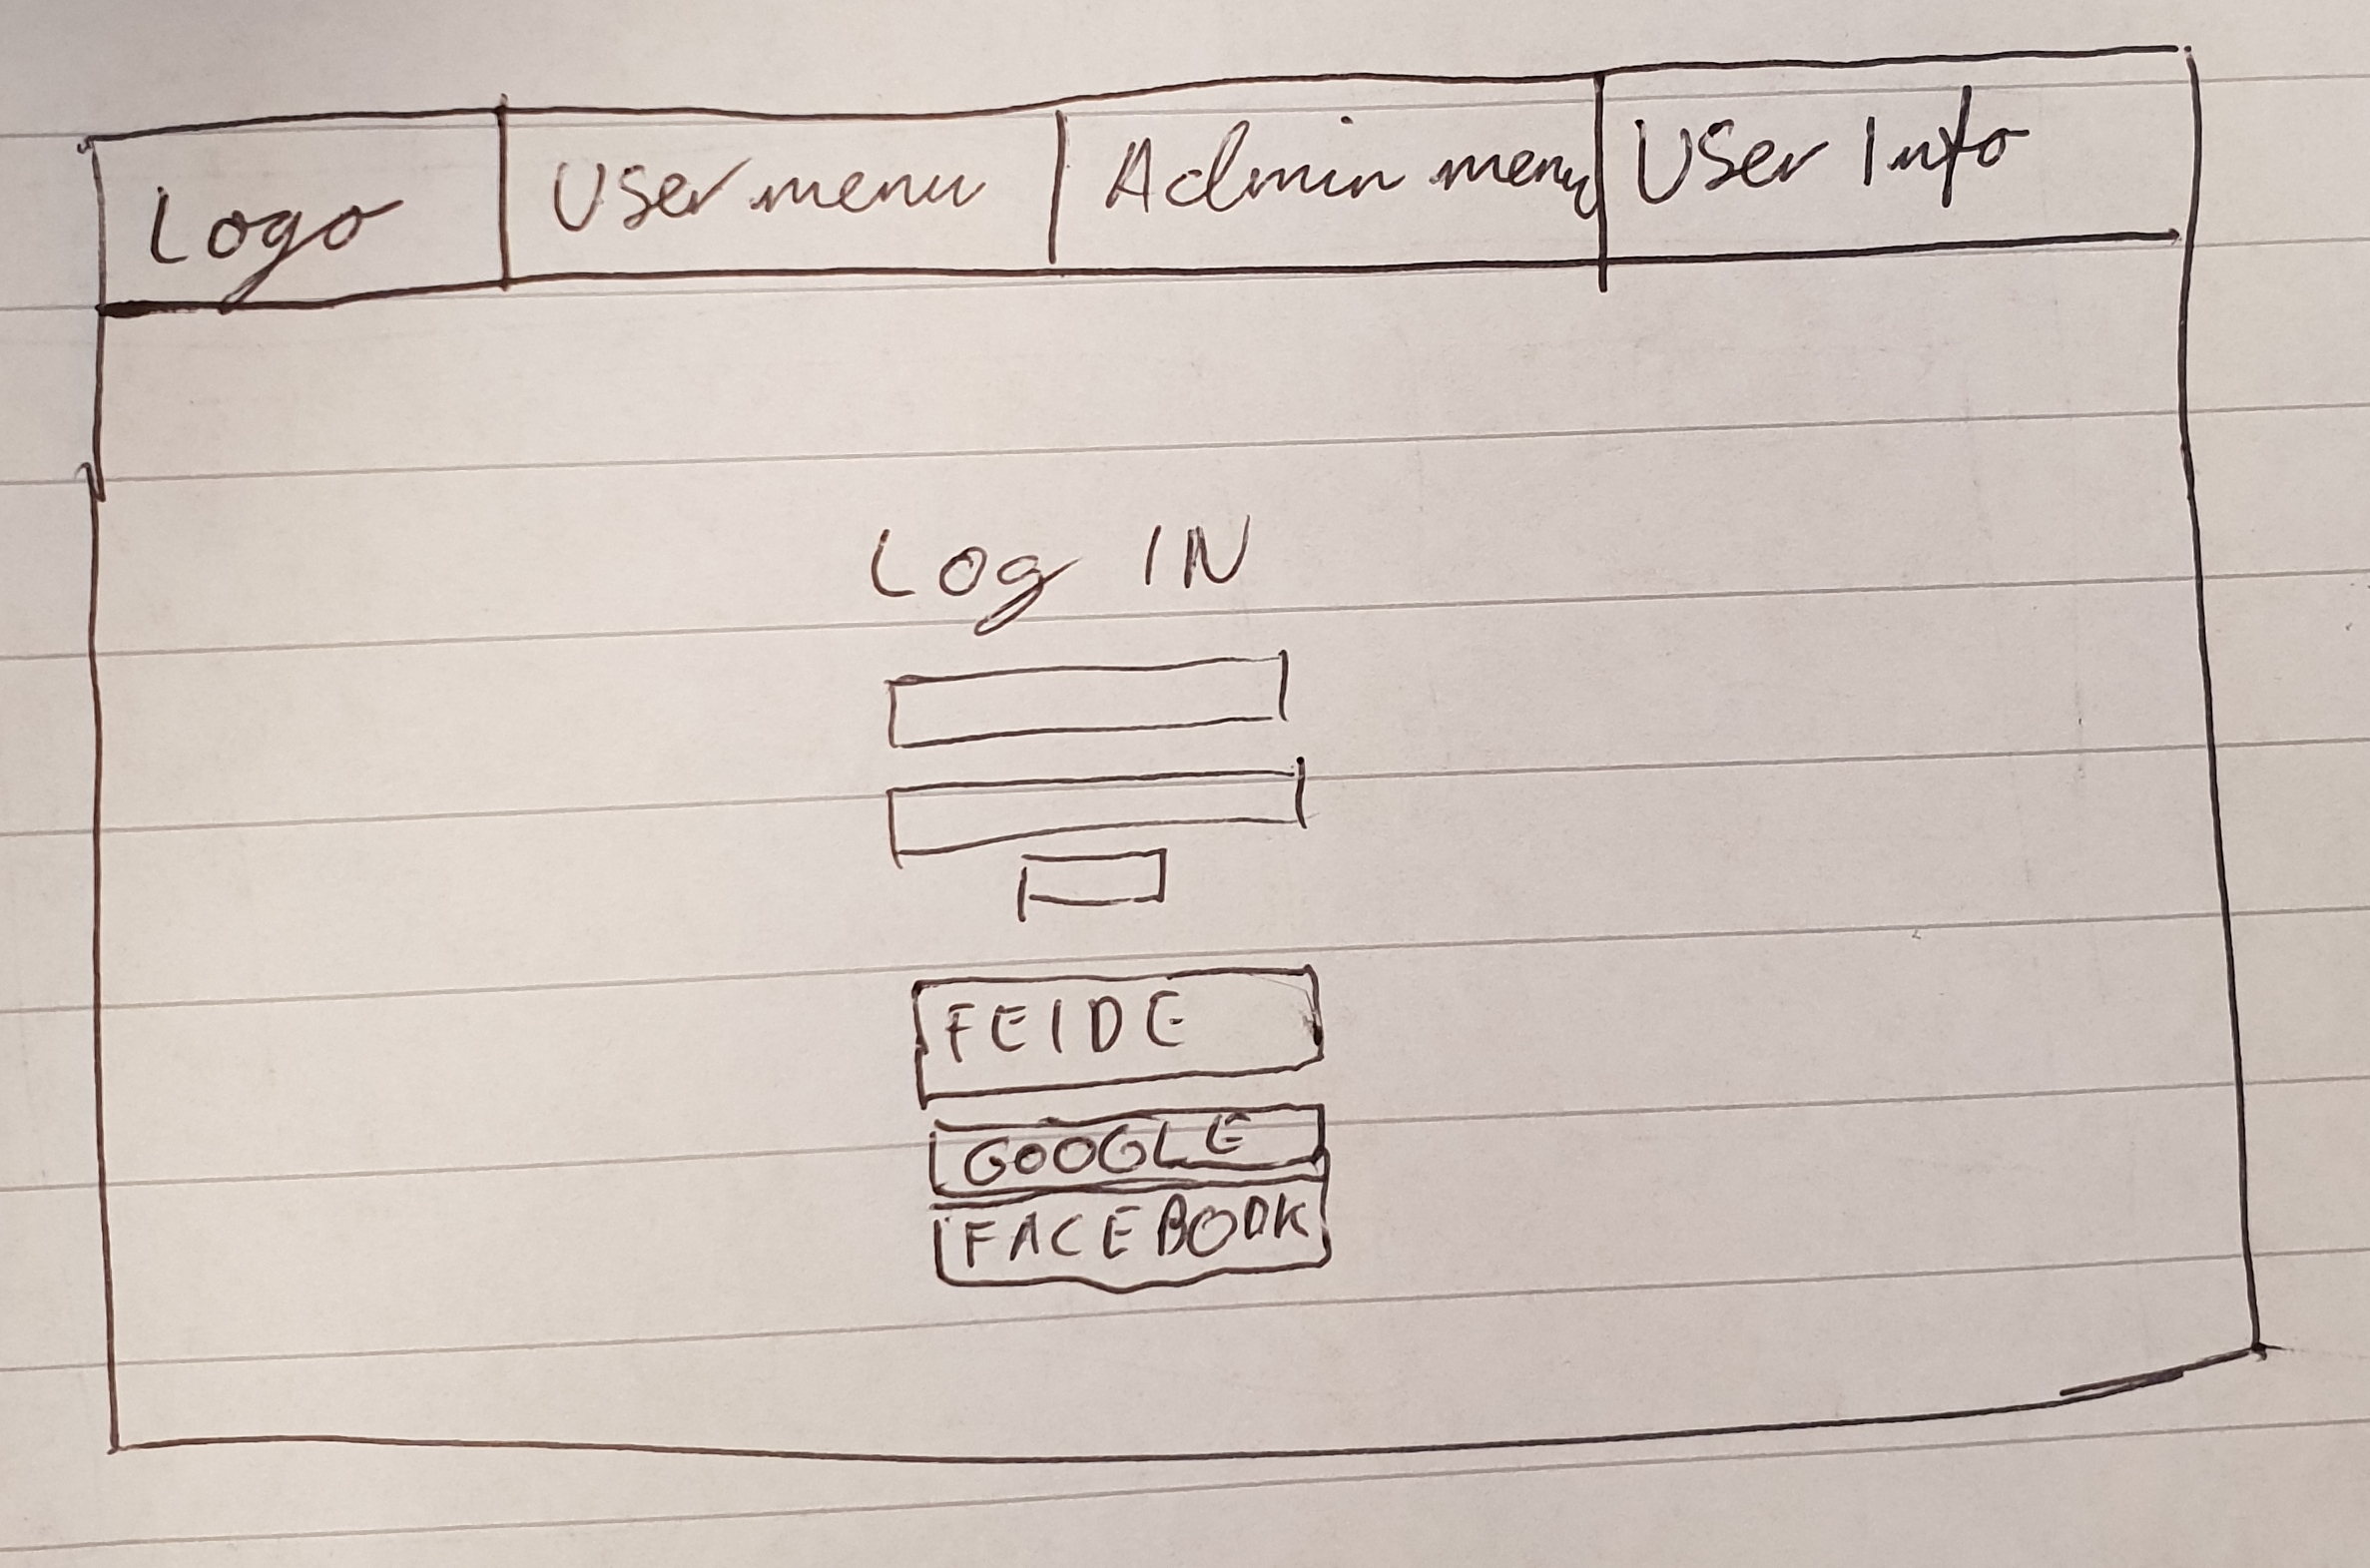 Logo User menu Admin menu User Info
Log IN
FEIDE
GOOGLE
FACEBOOK